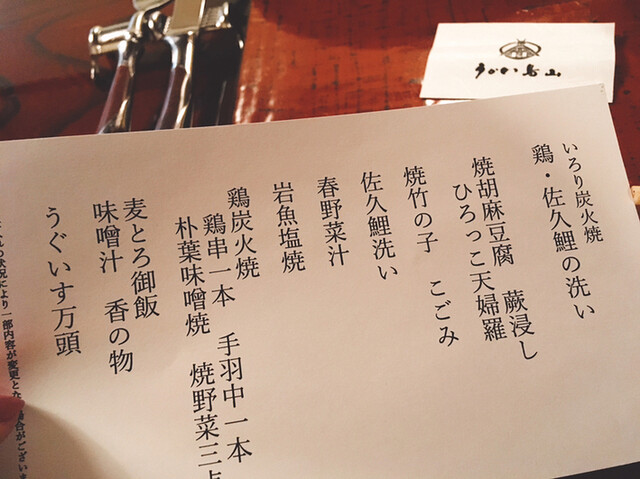 うかい鳥山
いろり炭火焼
鶏・佐久鯉の洗い
焼胡麻豆腐　蕨浸し
ひろっこ天婦羅
焼竹の子　こごみ
佐久鯉洗い
春野菜汁
岩魚塩焼
鶏炭火焼
鶏串一本　手羽中一本
朴葉味噌焼　焼野菜三点
麦とろ御飯
味噌汁　香の物
うぐいす万頭
状況により一部内容が変更となる場合がござい